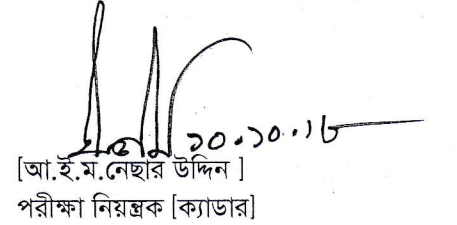 ১০.১০.১৮
[আ.ই.ম.নেছার উদ্দিন ]
পরীক্ষা নিয়ন্ত্রক [ক্যাডার]